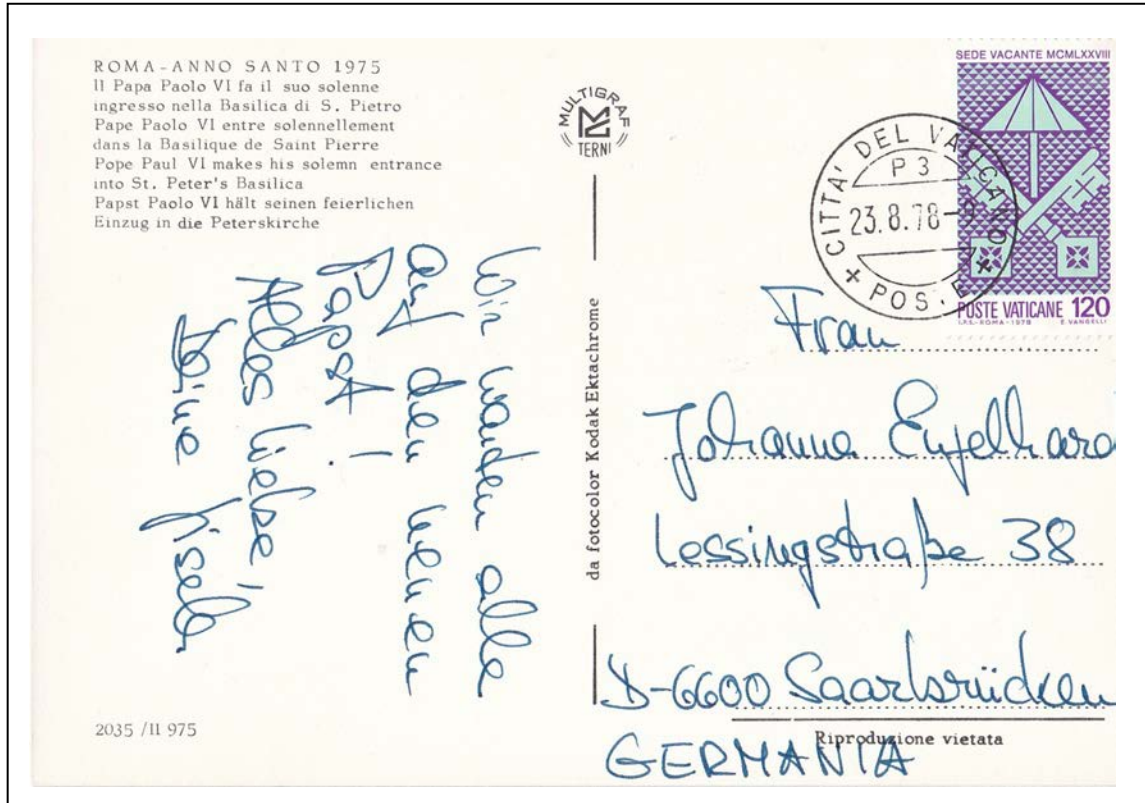 ROMA-ANNO SANTO 1975
Il Papa Paolo VI fa il suo solenne
ingresso nella Basilica di S. Pietro
Pape Paolo VI entre solennellement
dans la Basilique de Saint Pierre
Pope Paul VI makes his solemn entrance
into St. Peter's Basilica
Papst Paolo VI hält seinen feierlichen
Einzug in die Peterskirche
Wir warten alle
auf den neuen
Papst!
Alles Liebe!
Deine Gisela
2035/II 975
MULTIGRAF
TERNI
da fotocolor Kodak Ektachrome
SEDE VACANTE MCMLXXVIII
POSTE VATICANE 120
I.P.S.-ROMA-1978 E. VANGELLI
CITTA' DEL VATICANO
P 3
23.8.78-9
POSTE
Frau
Johanna Engelhard
Lessingstraße 38
D-6600 Saarbrücken
GERMANIA
Riproduzione vietata